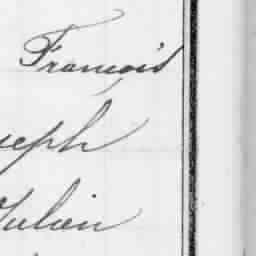 François
seph
Julien